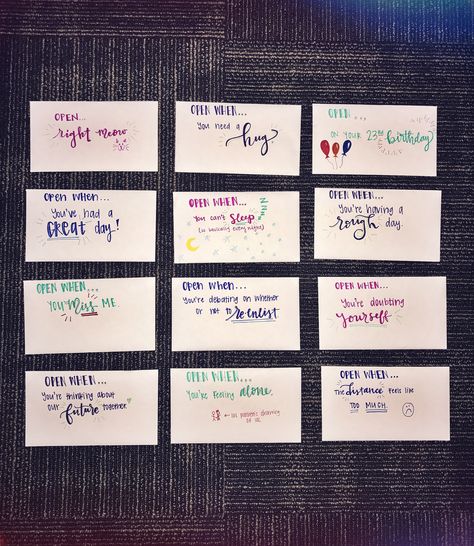 OPEN...
right meow
OPEN WHEN...
You need a
hug.
OPEN...
ON YOUR 23RD birthday
Open When...
You've had a
GREAT day!
OPEN WHEN...
You can't Sleep
(so basically every night)
OPEN WHEN...
You're having a
rough day.
OPEN WHEN...
YOU Miss ME.
Open When...
You're debating on whether
or not to re-enlist
OPEN WHEN...
You're doubting
yourself
OPEN WHEN...
You're thinking about
our future together.
OPEN WHEN...
You're feeling alone.
OF US.
OPEN WHEN...
The distance feels like
TOO MUCH.